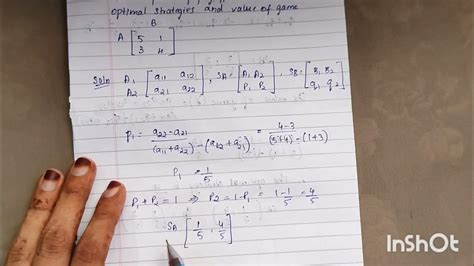 optimal strategies and value of game
B
A [5 1
3 4]
Soln A1 [a11 a12
A2 a21 a22], SA = [A1 A2
P1 P2], SB = [B1 B2
q1 q2]
P1 = a22 - a21 / (a11 + a22) - (a12 + a21) = 4-3 / (5+4) - (1+3)
P1 = 1/5
P1 + P2 = 1 ⇒ P2 = 1 - P1 = 1-1/5 = 4/5
SA [1/5, 4/5]
InShOt